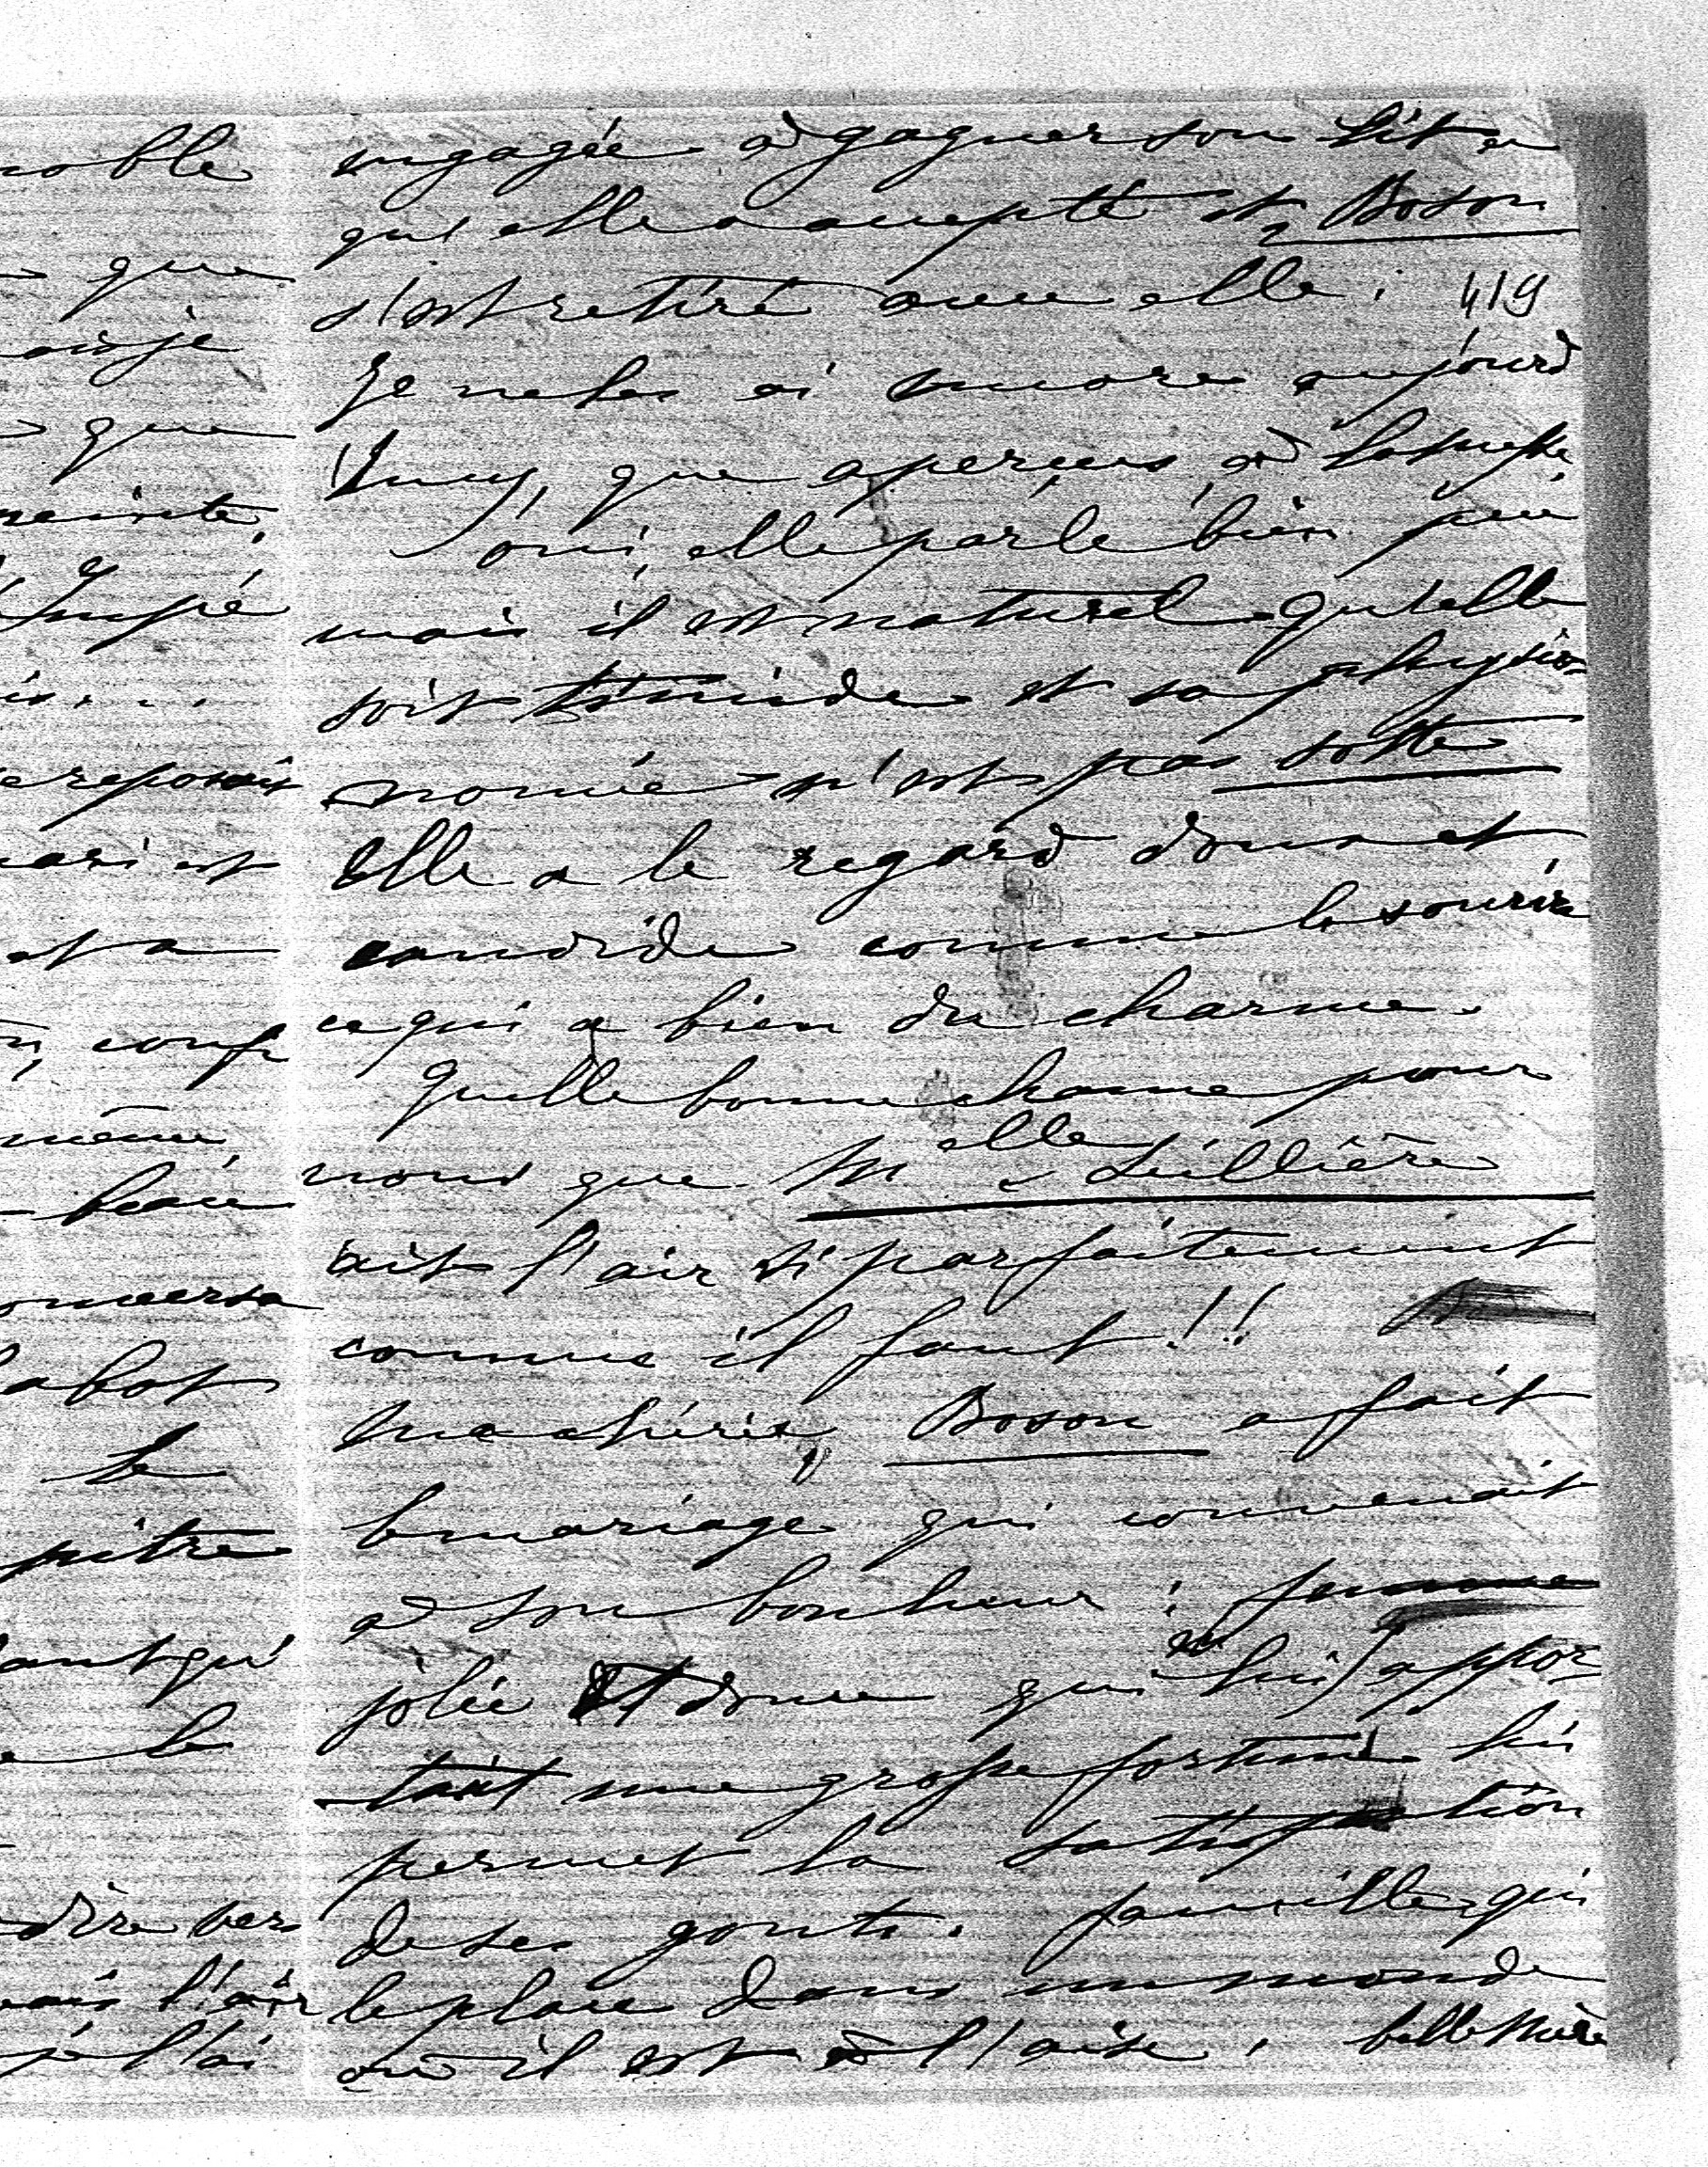 noble
que
ai-je
que
ari est
et a
coup
même
beau
conversa
le
pitre
tant qu'
le
dire ver
l'air
l'ai
engagée à gagner son lit
qu'elle a accepté et Boson
s'est retiré avec elle.
419
Je ne les ai encore aujourd
huy, que aperçus, à la messe
oui, elle parle bien peu
mais il est naturel qu'elle
soit timide et sa physio
nomie n'est pas sotte
Elle a le regard doux et
candide comme le sourire
ce qui a bien du charme.
Quelle bonne chance pour
nous que Melle Seillière
ait l'air si parfaitement
comme il faut!!
Ma chérie, Boson a fait
le mariage qui convenait
à son bonheur : femme
jolie et douce qui en lui appor
tant une grosse fortune lui
permet la satisfaction
de ses gouts. famille qui
le place dans un monde
où il est à l'aise. belle Mère